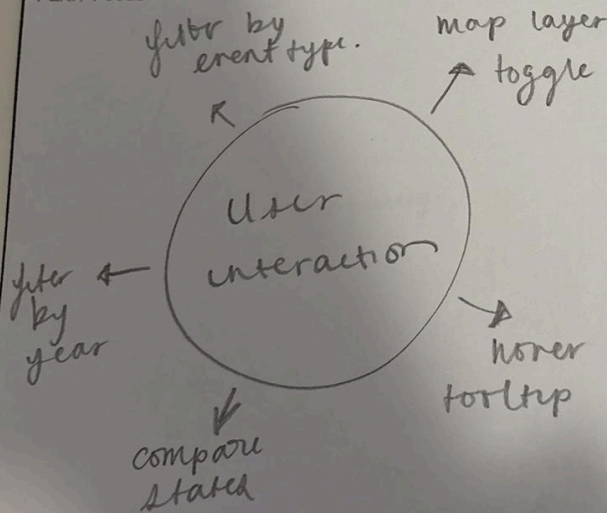 filter by
event type.
map layer
toggle
User
interaction
filter
by
year
hover
tooltip
compare
states